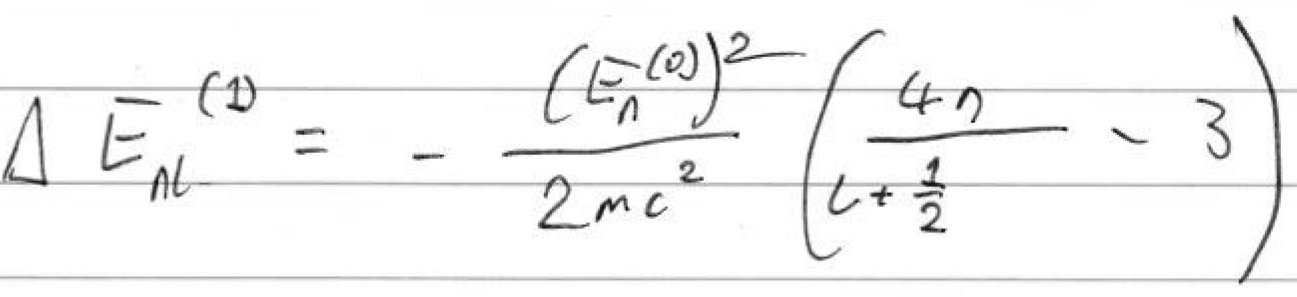 $\Delta E_{nl}^{(1)} = - \frac{(E_n^{(0)})^2}{2mc^2} \left( \frac{4n}{l + \frac{1}{2}} - 3 \right)$